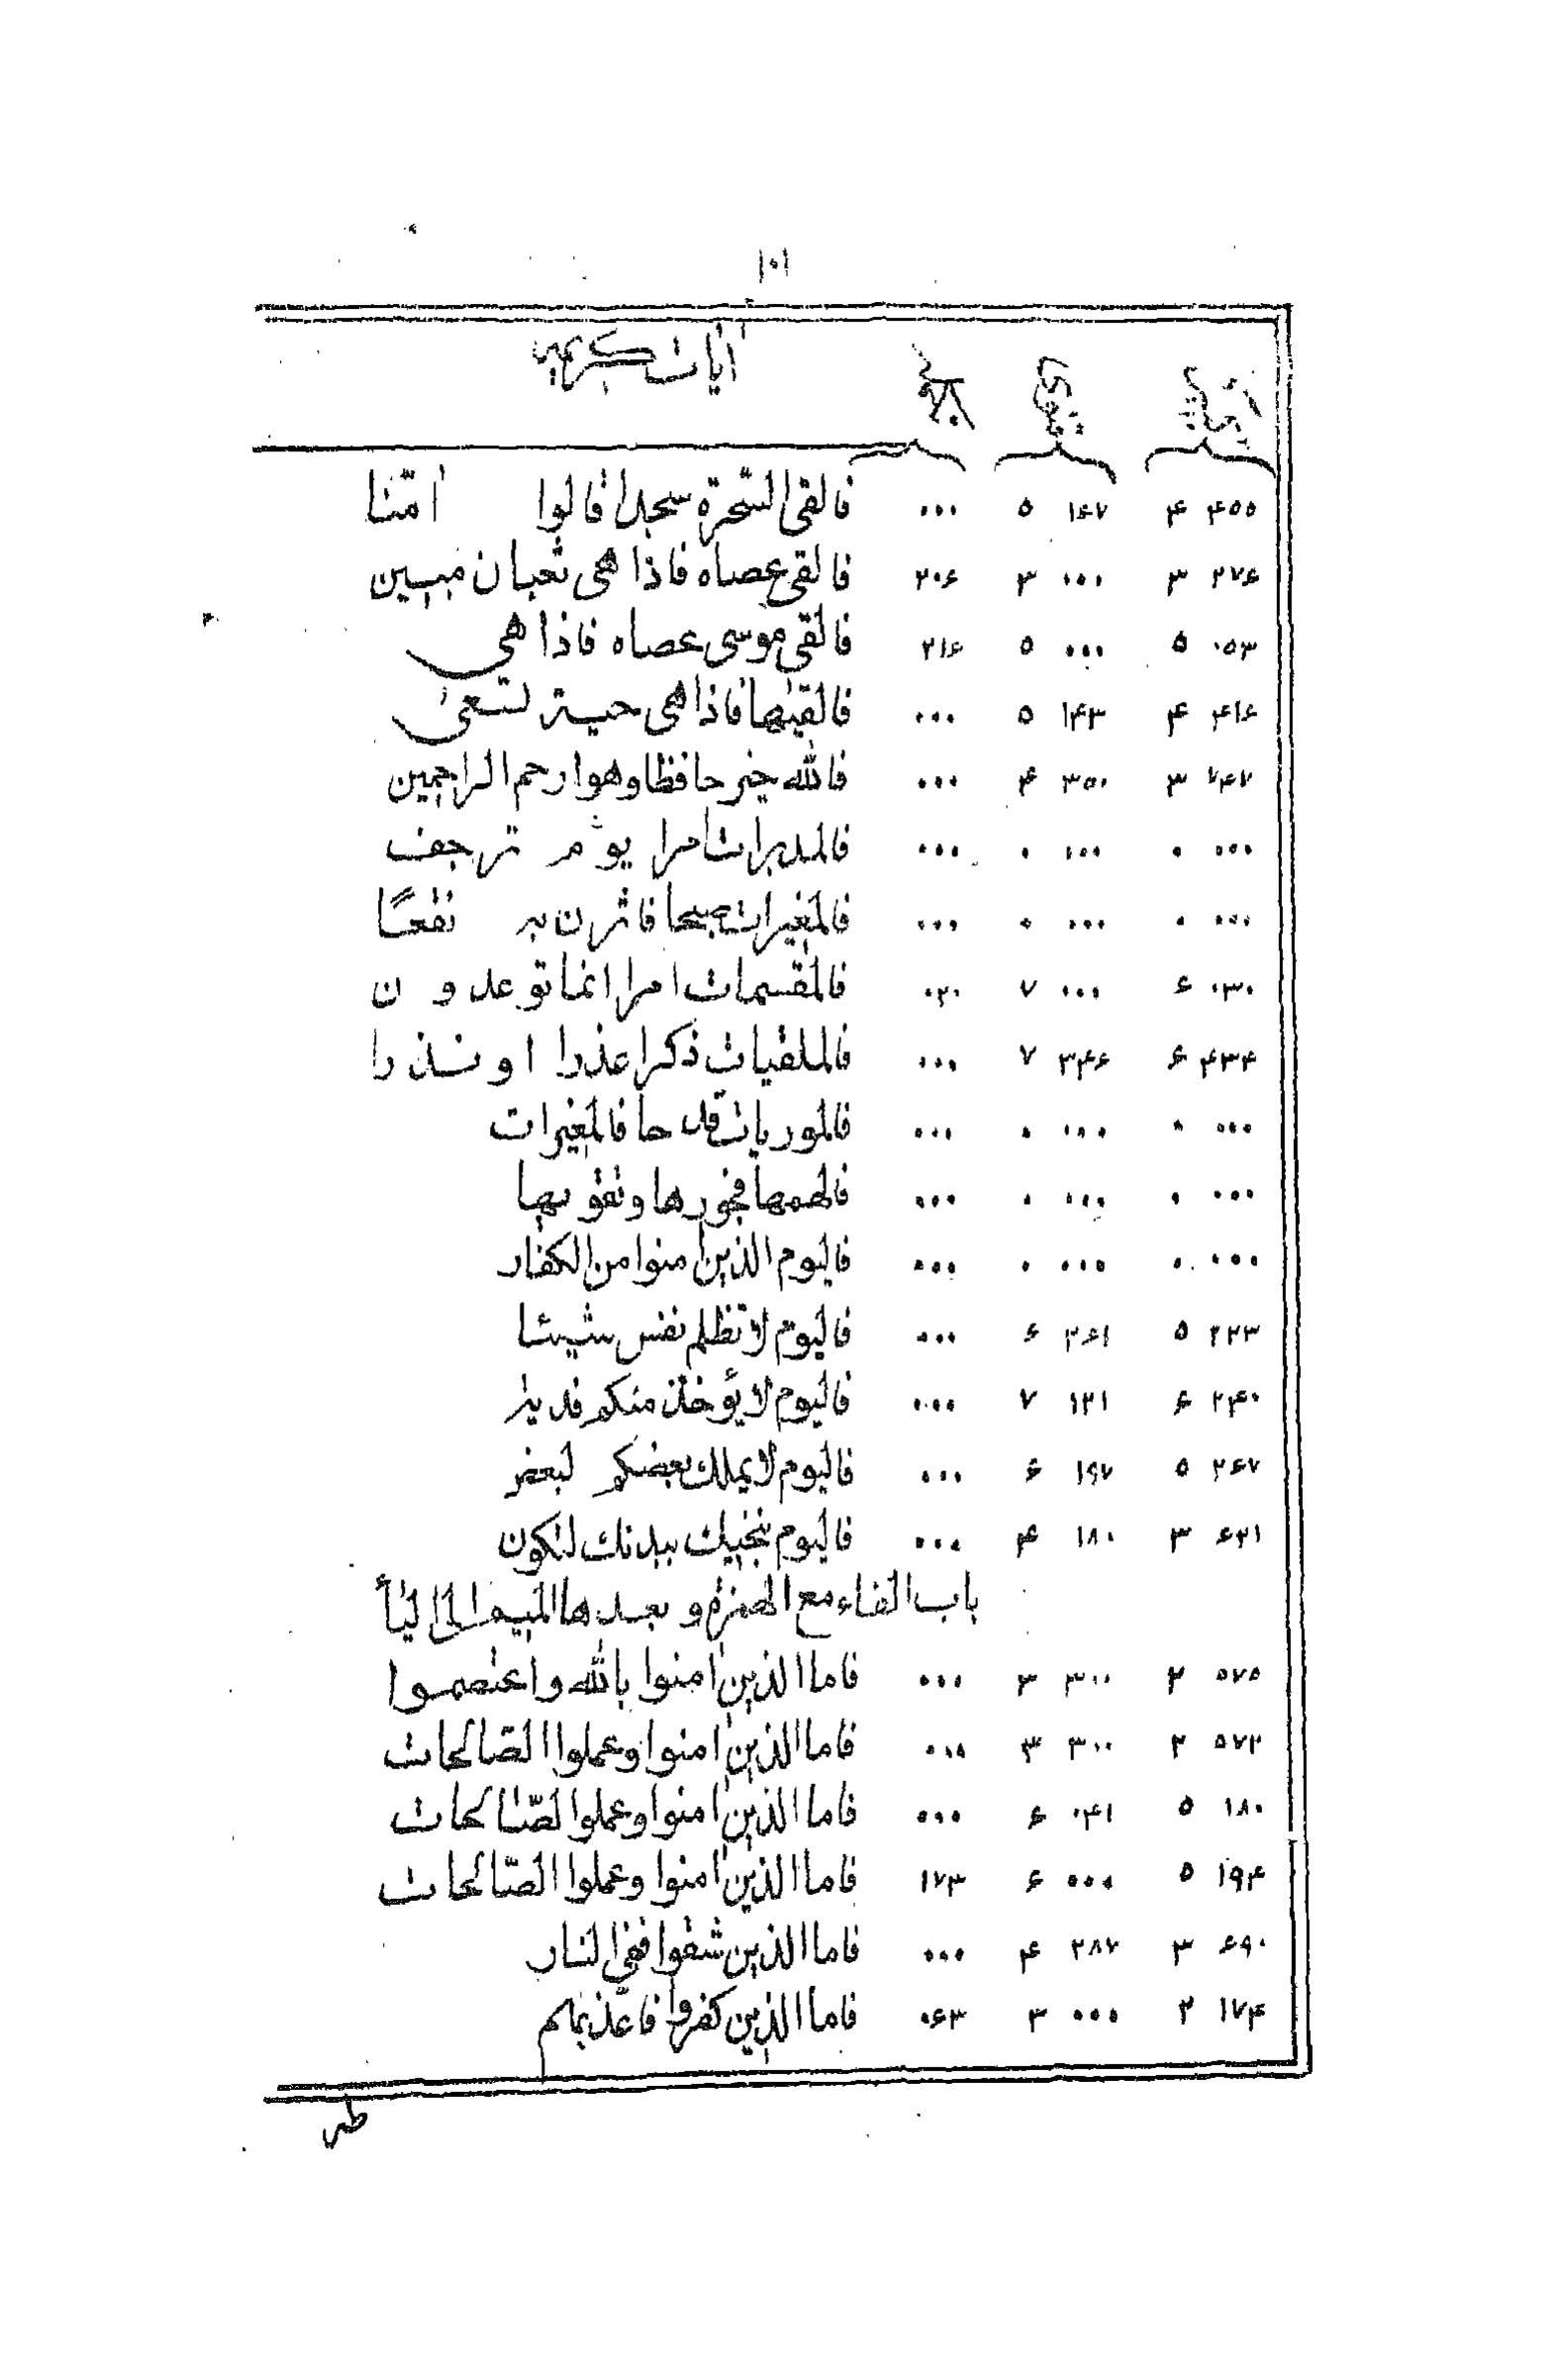 ١٠١
آیات کریمه
۴۵۵ ۴ ۱۴۷ ۵ ۰۰۰ فالقی السّحرة سجدا قالوا امنّا
۲۷۶ ۳ ۰۰۰ ۳ ۲۰۶ فالقی عصاه فاذا هی ثعبان مبین
۰۵۳ ۵ ۰۰۰ ۵ ۲۱۶ فالقی موسی عصاه فاذا هی
۴۱۶ ۴ ۱۴۳ ۵ ۰۰۰ فالقیٰها فاذا هی حیة تسعیٰ
۷۴۷ ۳ ۳۵۰ ۴ ۰۰۰ فالله خیر حافظا وهو ارحم الراحمین
۰۰۰ ۰ ۰۰۰ ۰ ۰۰۰ فالمدبرات امرا یوم ترجف
۰۰۰ ۰ ۰۰۰ ۰ ۰۰۰ فالمغیرات صبحا فاثرن به نقعًا
۰۳۰ ۶ ۰۰۰ ۷ ۰۲۰ فالمقسمات امرا انما توعدون
۴۳۴ ۶ ۳۴۶ ۷ ۰۰۰ فالملقیات ذکرا عذرا او نذرا
۰۰۰ ۰ ۰۰۰ ۰ ۰۰۰ فالموریات قدحا فالمغیرات
۰۰۰ ۰ ۰۰۰ ۰ ۰۰۰ فالهمها فجورها وتقویها
۰۰۰ ۰ ۰۰۰ ۰ ۰۰۰ فالیوم الذین امنوا من الکفار
۲۲۳ ۵ ۲۶۱ ۶ ۰۰۰ فالیوم لا تظلم نفس شیئا
۲۴۰ ۶ ۱۲۱ ۷ ۰۰۰ فالیوم لا یؤخذ منکم فدیة
۲۶۷ ۵ ۱۹۷ ۶ ۰۰۰ فالیوم لا یملک بعضکم لبعض
۶۲۱ ۳ ۱۸۰ ۴ ۰۰۰ فالیوم ننجیک ببدنک لتکون
باب الفاء مع الهمزة و بعدها المیم الی الیأ
۵۷۵ ۲ ۳۰۰ ۳ ۰۰۰ فاما الذین امنوا بالله واعتصموا
۵۷۲ ۲ ۳۰۰ ۳ ۰۰۰ فاما الذین امنوا وعملوا الصّالحات
۱۸۰ ۵ ۰۴۱ ۶ ۰۰۰ فاما الذین امنوا وعملوا لصّالحات
۱۹۴ ۵ ۰۰۰ ۶ ۱۷۳ فاما الذین امنوا وعملوا الصّالحات
۶۹۰ ۳ ۲۸۷ ۴ ۰۰۰ فاما الذین شقوا ففی النار
۱۷۴ ۲ ۰۰۰ ۳ ۰۶۳ فاما الذین کفروا فاعذبهم